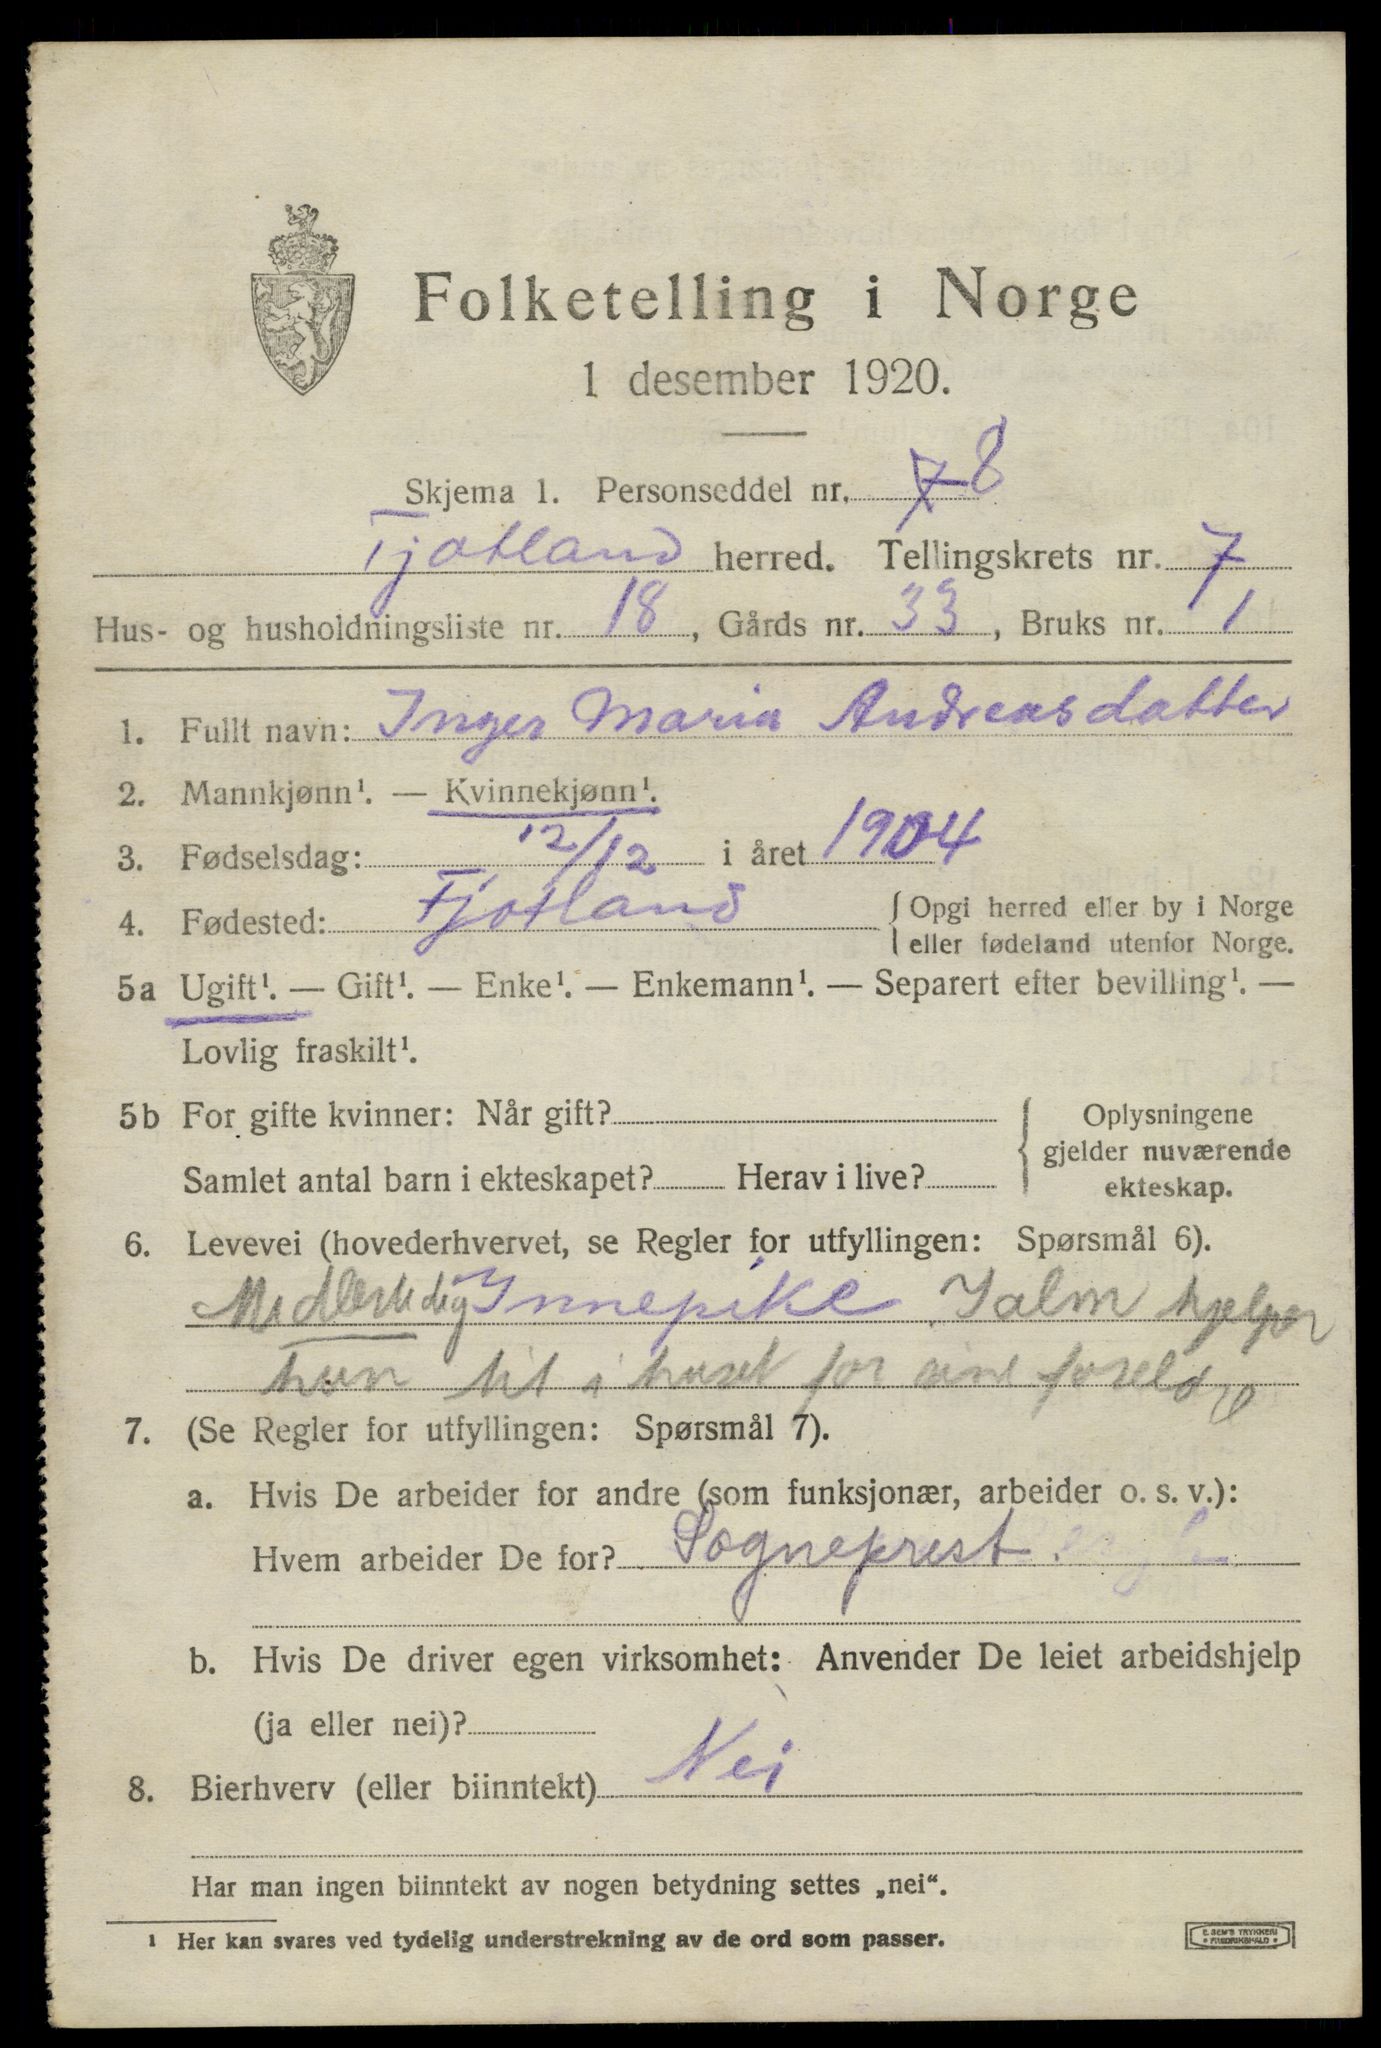 Folketelling i Norge
1 desember 1920.
Skjema 1. Personseddel nr. 7 8
Fjotland herred. Tellingskrets nr. 7
Hus- og husholdningsliste nr. 18, Gårds nr. 33, Bruks nr. 1
1. Fullt navn: Inger Maria Andreasdatter
2. Mannkjønn¹. — Kvinnekjønn¹.
3. Fødselsdag: 12/12 i året 1904
4. Fødested: Fjotland { Opgi herred eller by i Norge
eller fødeland utenfor Norge.
5a Ugift¹. — Gift¹. — Enke¹. — Enkemann¹. — Separert efter bevilling¹. —
Lovlig fraskilt¹.
5b For gifte kvinner: Når gift? { Oplysningene
gjelder nuværende
Samlet antal barn i ekteskapet? Herav i live? ekteskap.
6. Levevei (hovederhvervet, se Regler for utfyllingen: Spørsmål 6).
Innepike hjelper
hun til i huset for sine
7. (Se Regler for utfyllingen: Spørsmål 7).
a. Hvis De arbeider for andre (som funksjonær, arbeider o. s. v.):
Hvem arbeider De for? Sogneprest
b. Hvis De driver egen virksomhet: Anvender De leiet arbeidshjelp
(ja eller nei)?
8. Bierhverv (eller biinntekt) Nei
Har man ingen biinntekt av nogen betydning settes „nei“.
¹ Her kan svares ved tydelig understrekning av de ord som passer.
E. SEM'S TRYKKERI
FREDRIKSHALD